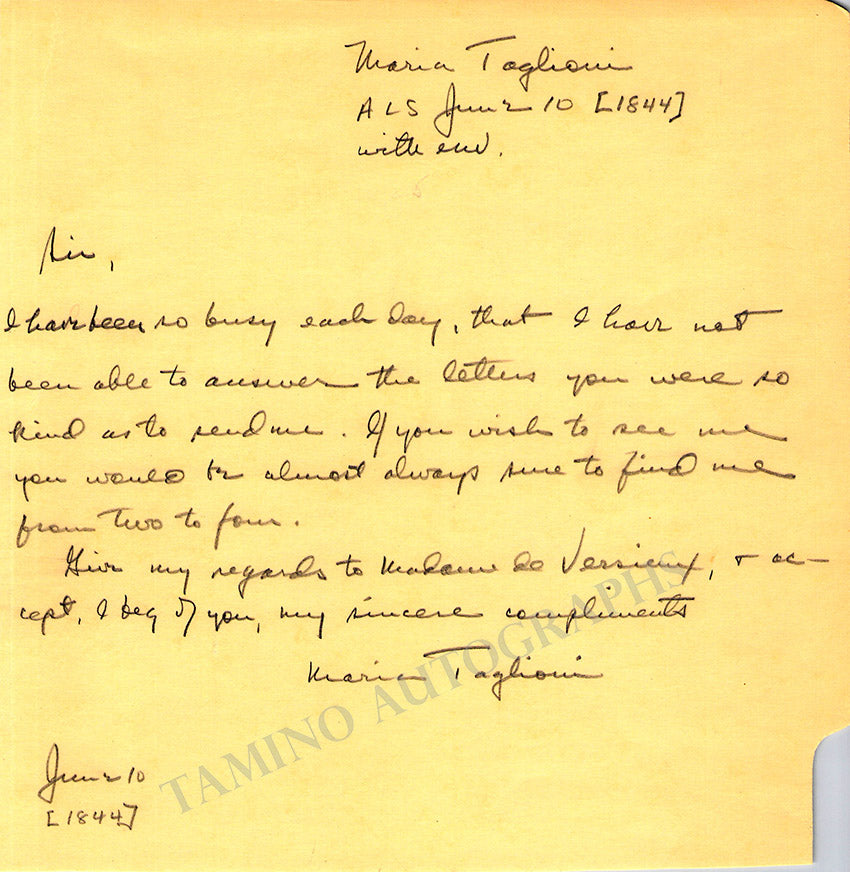 Maria Taglioni
ALS June 10 [1844]
with env.
Sir,
I have been so busy each day, that I have not
been able to answer the letters you were so
kind as to send me. If you wish to see me
you would be almost always sure to find me
from two to four.
Give my regards to Madame de Versieux, + ac-
cept, I beg of you, my sincere compliments
Maria Taglioni
June 10
[1844]
TAMINO AUTOGRAPHS